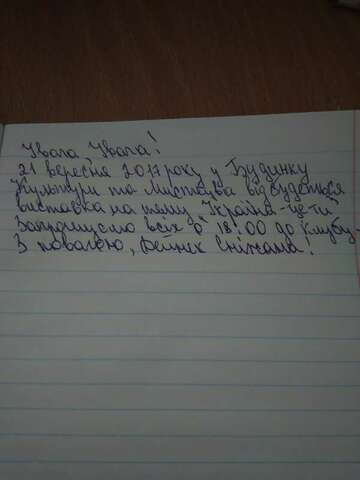 Увага, Увага!
21 вересня 2017 року у Будинку
Культури та Мистецтва відбудеться
виставка на тему „Україна-це ти"
Запрошуємо всіх о 18:00 до клубу.
З повагою, Дейнек Сніжана!